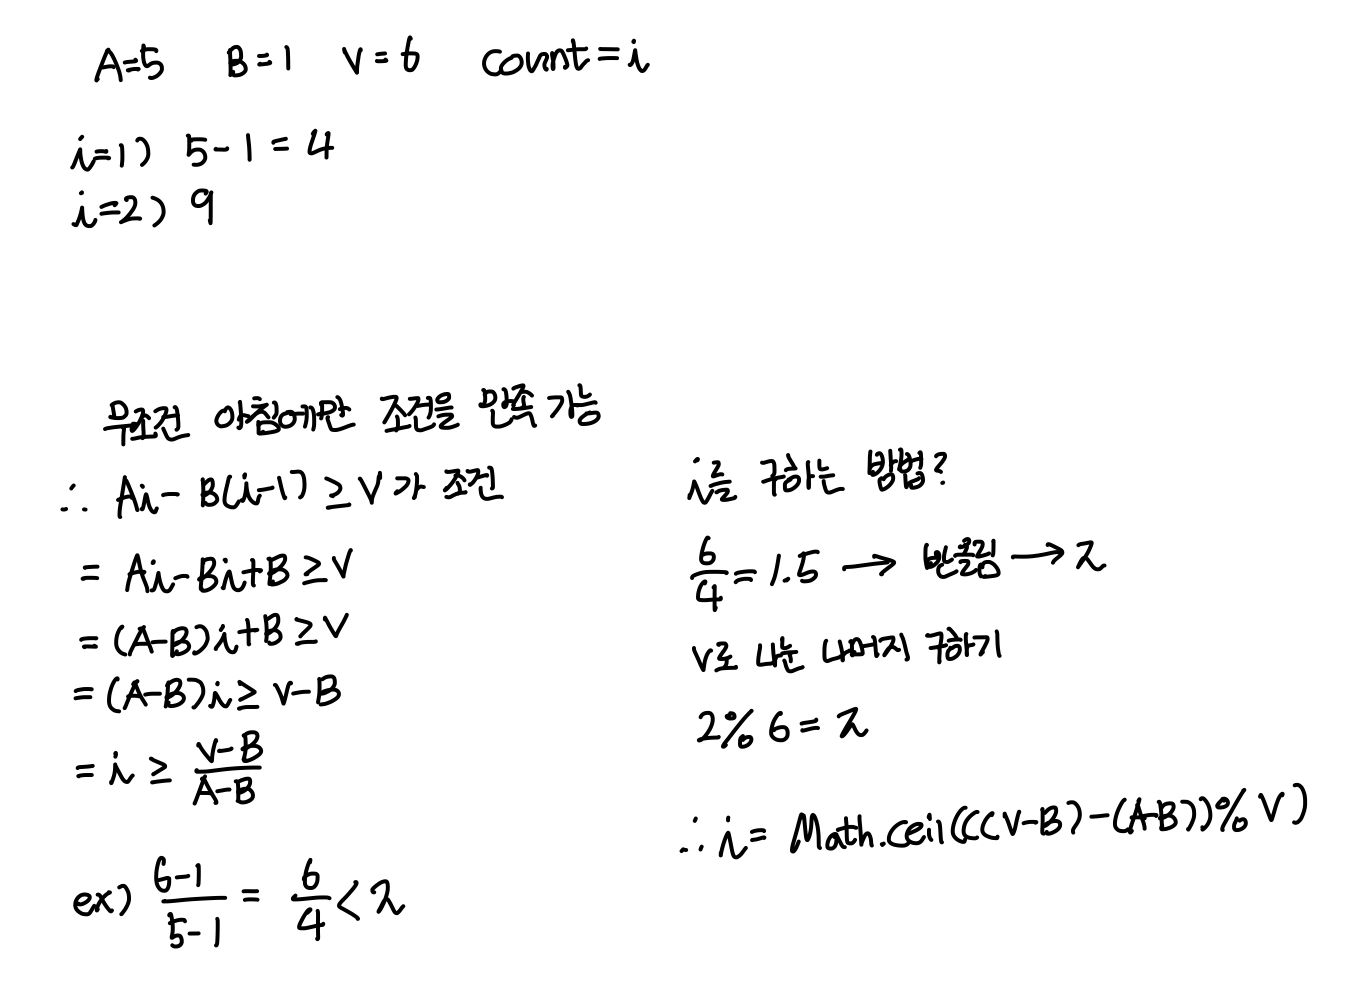 A=5 B=1 V=6 count=i
i=1) 5-1=4
i=2) 9
무조건 아침에만 조건을 만족 가능
∴ Ai-B(i-1) ≥ V가 조건
= Ai-Bi+B ≥ V
= (A-B)i+B ≥ V
= (A-B)i ≥ V-B
= i ≥ (V-B)/(A-B)
ex) 6-1/5-1 = 6/4 < 2
i를 구하는 방법?
6/4 = 1.5 → 반올림 → 2
V로 나눈 나머지 구하기
2%6=2
∴ i= Math.ceil(((V-B)-(A-B))%V)